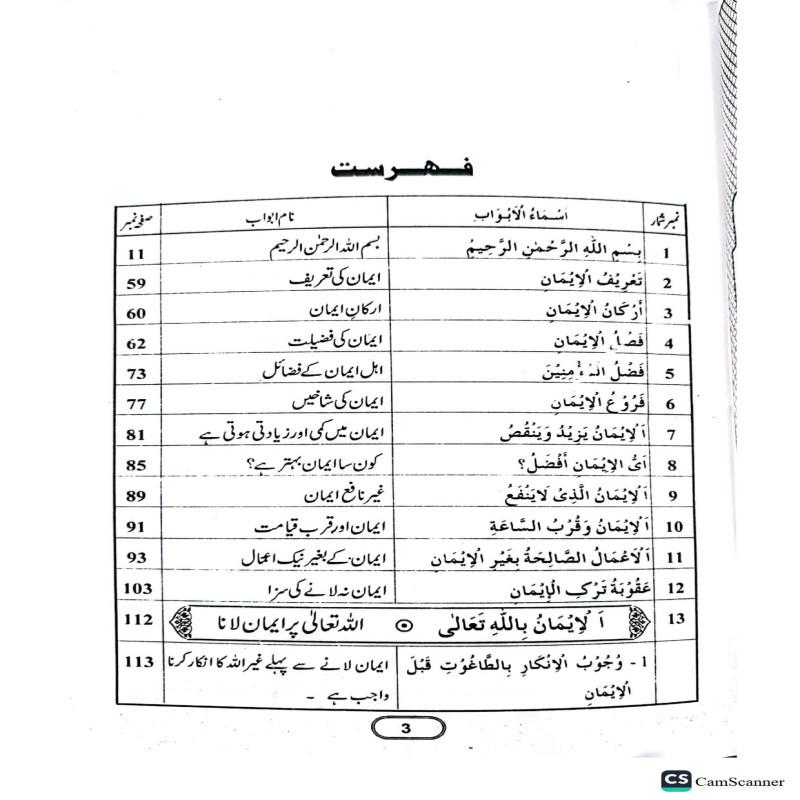 فہرست
نمبر شمار اَسْمَاءُ الْاَبْوَاب نام ابواب صفحہ نمبر
1 بِسْمِ اللهِ الرَّحْمٰنِ الرَّحِيْمِ بسم اللہ الرحمٰن الرحیم 11
2 تَعْرِيْفُ الْاِيْمَانِ ایمان کی تعریف 59
3 أَرْكَانُ الْاِيْمَانِ ارکانِ ایمان 60
4 فَضْلُ الْاِيْمَانِ ایمان کی فضیلت 62
5 فَضْلُ اہل ایمان کے فضائل 73
6 فَرُوْعُ الْاِيْمَانِ ایمان کی شاخیں 77
7 اَلْاِيْمَانُ يَزِيْدُ وَيَنْقُصُ ایمان میں کمی اور زیادتی ہوتی ہے 81
8 اَىُّ الْاِيْمَانِ أَفْضَلُ؟ کون سا ایمان بہتر ہے؟ 85
9 اَلْاِيْمَانُ الَّذِىْ لَايَنْفَعُ غیر نافع ایمان 89
10 اَلْاِيْمَانُ وَقُرْبُ السَّاعَةِ ایمان اور قرب قیامت 91
11 اَلْاَعْمَالُ الصَّالِحَةُ بِغَيْرِ الْاِيْمَانِ ایمان کے بغیر نیک اعمال 93
12 عَقُوْبَةُ تَرْكِ الْاِيْمَانِ ایمان نہ لانے کی سزا 103
13 اَلْاِيْمَانُ بِاللهِ تَعَالٰى ⊙ اللہ تعالیٰ پر ایمان لانا 112
1 - وُجُوْبُ الْاِنْكَارِ بِالطَّاغُوْتِ قَبْلَ ایمان لانے سے پہلے غیر اللہ کا انکار کرنا 113
الْاِيْمَانِ واجب ہے ۔
3
CS CamScanner